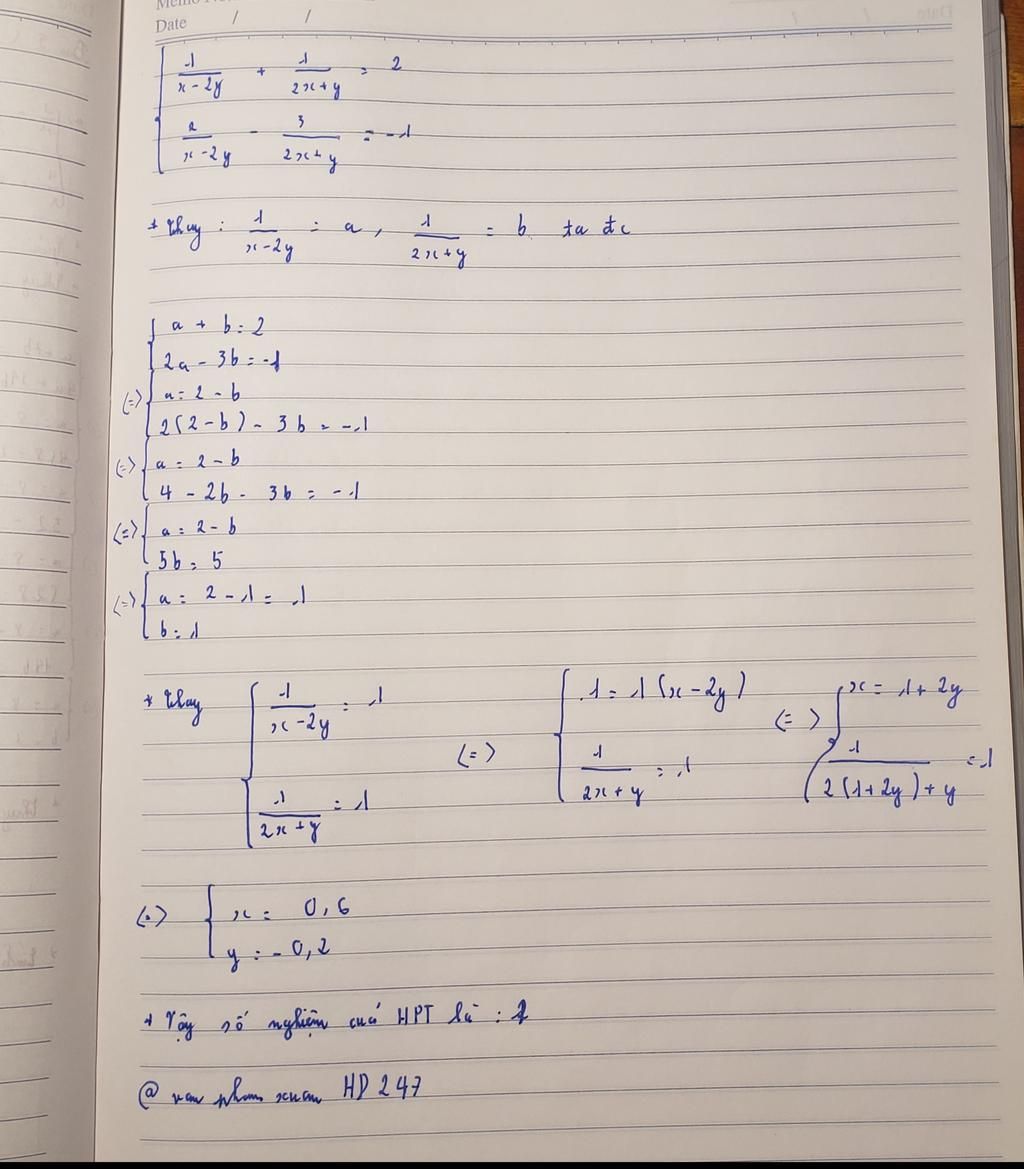 Date / /
1/(x-2y) + 1/(2x+y) = 2
2/(x-2y) - 3/(2x+y) = -1
* Thay : 1/(x-2y) = a, 1/(2x+y) = b ta đc
a + b = 2
2a - 3b = -1
(=) a = 2 - b
2(2-b) - 3b = -1
(=) a = 2 - b
4 - 2b - 3b = -1
(=) a = 2 - b
5b = 5
(=) a = 2 - 1 = 1
b = 1
* Thay 1/(x-2y) = 1 (=) 1 = 1(x-2y) (=) x = 1 + 2y
1/(2x+y) = 1 1/(2x+y) = 1 1/(2(1+2y)+y) = 1
(=) x = 0,6
y = -0,2
+ Vậy số nghiệm của HPT là : 1
@ van pham xuan HD 247